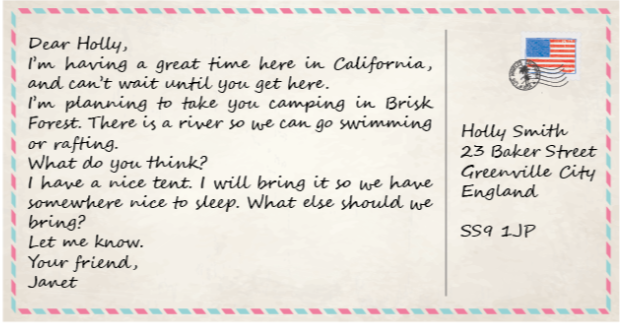 Dear Holly,
I'm having a great time here in California,
and can't wait until you get here.
I'm planning to take you camping in Brisk
Forest. There is a river so we can go swimming
or rafting.
What do you think?
I have a nice tent. I will bring it so we have
somewhere nice to sleep. What else should we
bring?
Let me know.
Your friend,
Janet
Holly Smith
23 Baker Street
Greenville City
England
SS9 1JP